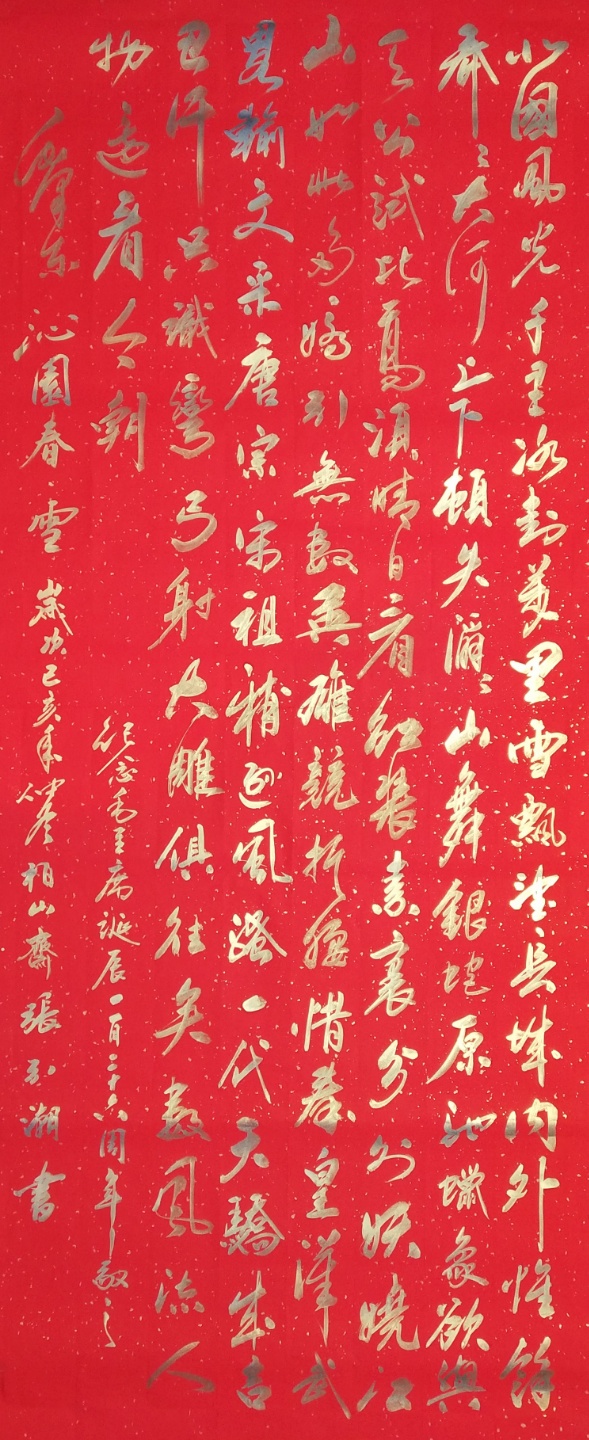 北國風光千里冰封萬里雪飄望長城內外惟餘
莽々大河上下頓失滔々山舞銀蛇原馳蠟象欲與
天公試比高須晴日看紅裝素裹分外妖嬈江
山如此多嬌引無數英雄競折腰惜秦皇漢武
略輸文采唐宗宋祖稍遜風騷一代天驕成吉
思汗只識彎弓射大雕俱往矣數風流人
物還看今朝
紀念毛主席誕辰一百二十六周年敬之
毛澤東沁園春·雪歲次己亥年 柏山齋張 潮書